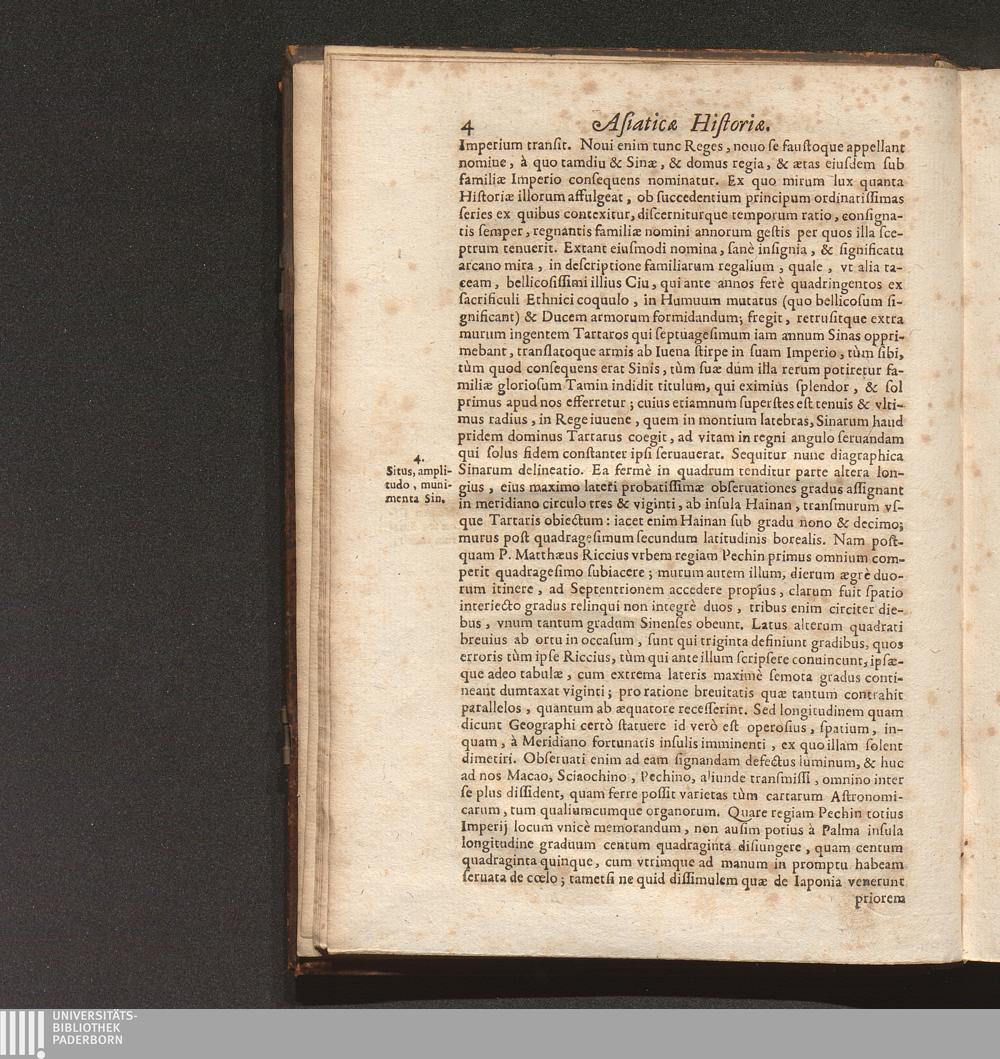 4 Asiaticæ Historiæ.
Imperium transit. Noui enim tunc Reges, nouo se faustoque appellant
nomine, à quo tamdiu & Sinæ, & domus regia, & ætas eiusdem sub
familiæ Imperio consequens nominatur. Ex quo mirum lux quanta
Historiæ illorum affulgeat, ob succedentium principum ordinatissimas
series ex quibus contexitur, discerniturque temporum ratio, consigna-
tis semper, regnantis familiæ nomini annorum gestis per quos illa sce-
ptrum tenuerit. Extant eiusmodi nomina, sanè insignia, & significatu
arcano mira, in descriptione familiarum regalium, quale, vt alia ta-
ceam, bellicosissimi illius Ciu, qui ante annos ferè quadringentos ex
sacrificuli Ethnici coquulo, in Humuum mutatus (quo bellicosum si-
gnificant) & Ducem armorum formidandum; fregit, retrusitque extra
murum ingentem Tartaros qui septuagesimum iam annum Sinas oppri-
mebant, translatoque armis ab Iuena stirpe in suam Imperio, tùm sibi,
tùm quod consequens erat Sinis, tùm suæ dum illa rerum potiretur fa-
miliæ gloriosum Tamin indidit titulum, qui eximius splendor, & sol
primus apud nos efferretur; cuius etiamnum superstes est tenuis & vlti-
mus radius, in Rege iuuene, quem in montium latebras, Sinarum haud
pridem dominus Tartarus coegit, ad vitam in regni angulo seruandam
qui solus fidem constanter ipsi seruauerat. Sequitur nunc diagraphica
4.
Situs, ampli-
tudo, muni-
menta Sin.
Sinarum delineatio. Ea fermè in quadrum tenditur parte altera lon-
gius, eius maximo lateri probatissimæ obseruationes gradus assignant
in meridiano circulo tres & viginti, ab insula Hainan, transmurum vs-
que Tartaris obiectum: iacet enim Hainan sub gradu nono & decimo;
murus post quadragesimum secundum latitudinis borealis. Nam post-
quam P. Matthæus Riccius vrbem regiam Pechin primus omnium com-
perit quadragesimo subiacere; murum autem illum, dierum ægrè duo-
rum itinere, ad Septentrionem accedere propius, clarum fuit spatio
interiecto gradus relinqui non integrè duos, tribus enim circiter die-
bus, vnum tantum gradum Sinenses obeunt. Latus alterum quadrati
breuius ab ortu in occasum, sunt qui triginta definiunt gradibus, quos
erroris tùm ipse Riccius, tùm qui ante illum scripsere conuincunt, ipsæ-
que adeo tabulæ, cum extrema lateris maximè semota gradus conti-
neant dumtaxat viginti; pro ratione breuitatis quæ tantum contrahit
parallelos, quantum ab æquatore recesserint. Sed longitudinem quam
dicunt Geographi certò statuere id verò est operosius, spatium, in-
quam, à Meridiano fortunatis insulis imminenti, ex quo illam solent
dimetiri. Obseruati enim ad eam signandam defectus luminum, & huc
ad nos Macao, Sciaochino, Pechino, aliunde transmissi, omnino inter
se plus dissident, quam ferre possit varietas tùm cartarum Astronomi-
carum, tum qualiumcumque organorum. Quare regiam Pechin totius
Imperij locum vnicè memorandum, non ausim potius à Palma insula
longitudine graduum centum quadraginta disiungere, quam centum
quadraginta quinque, cum vtrimque ad manum in promptu habeam
seruata de cœlo; tametsi ne quid dissimulem quæ de Iaponia venerunt
priorem
UNIVERSITÄTS-
BIBLIOTHEK
PADERBORN